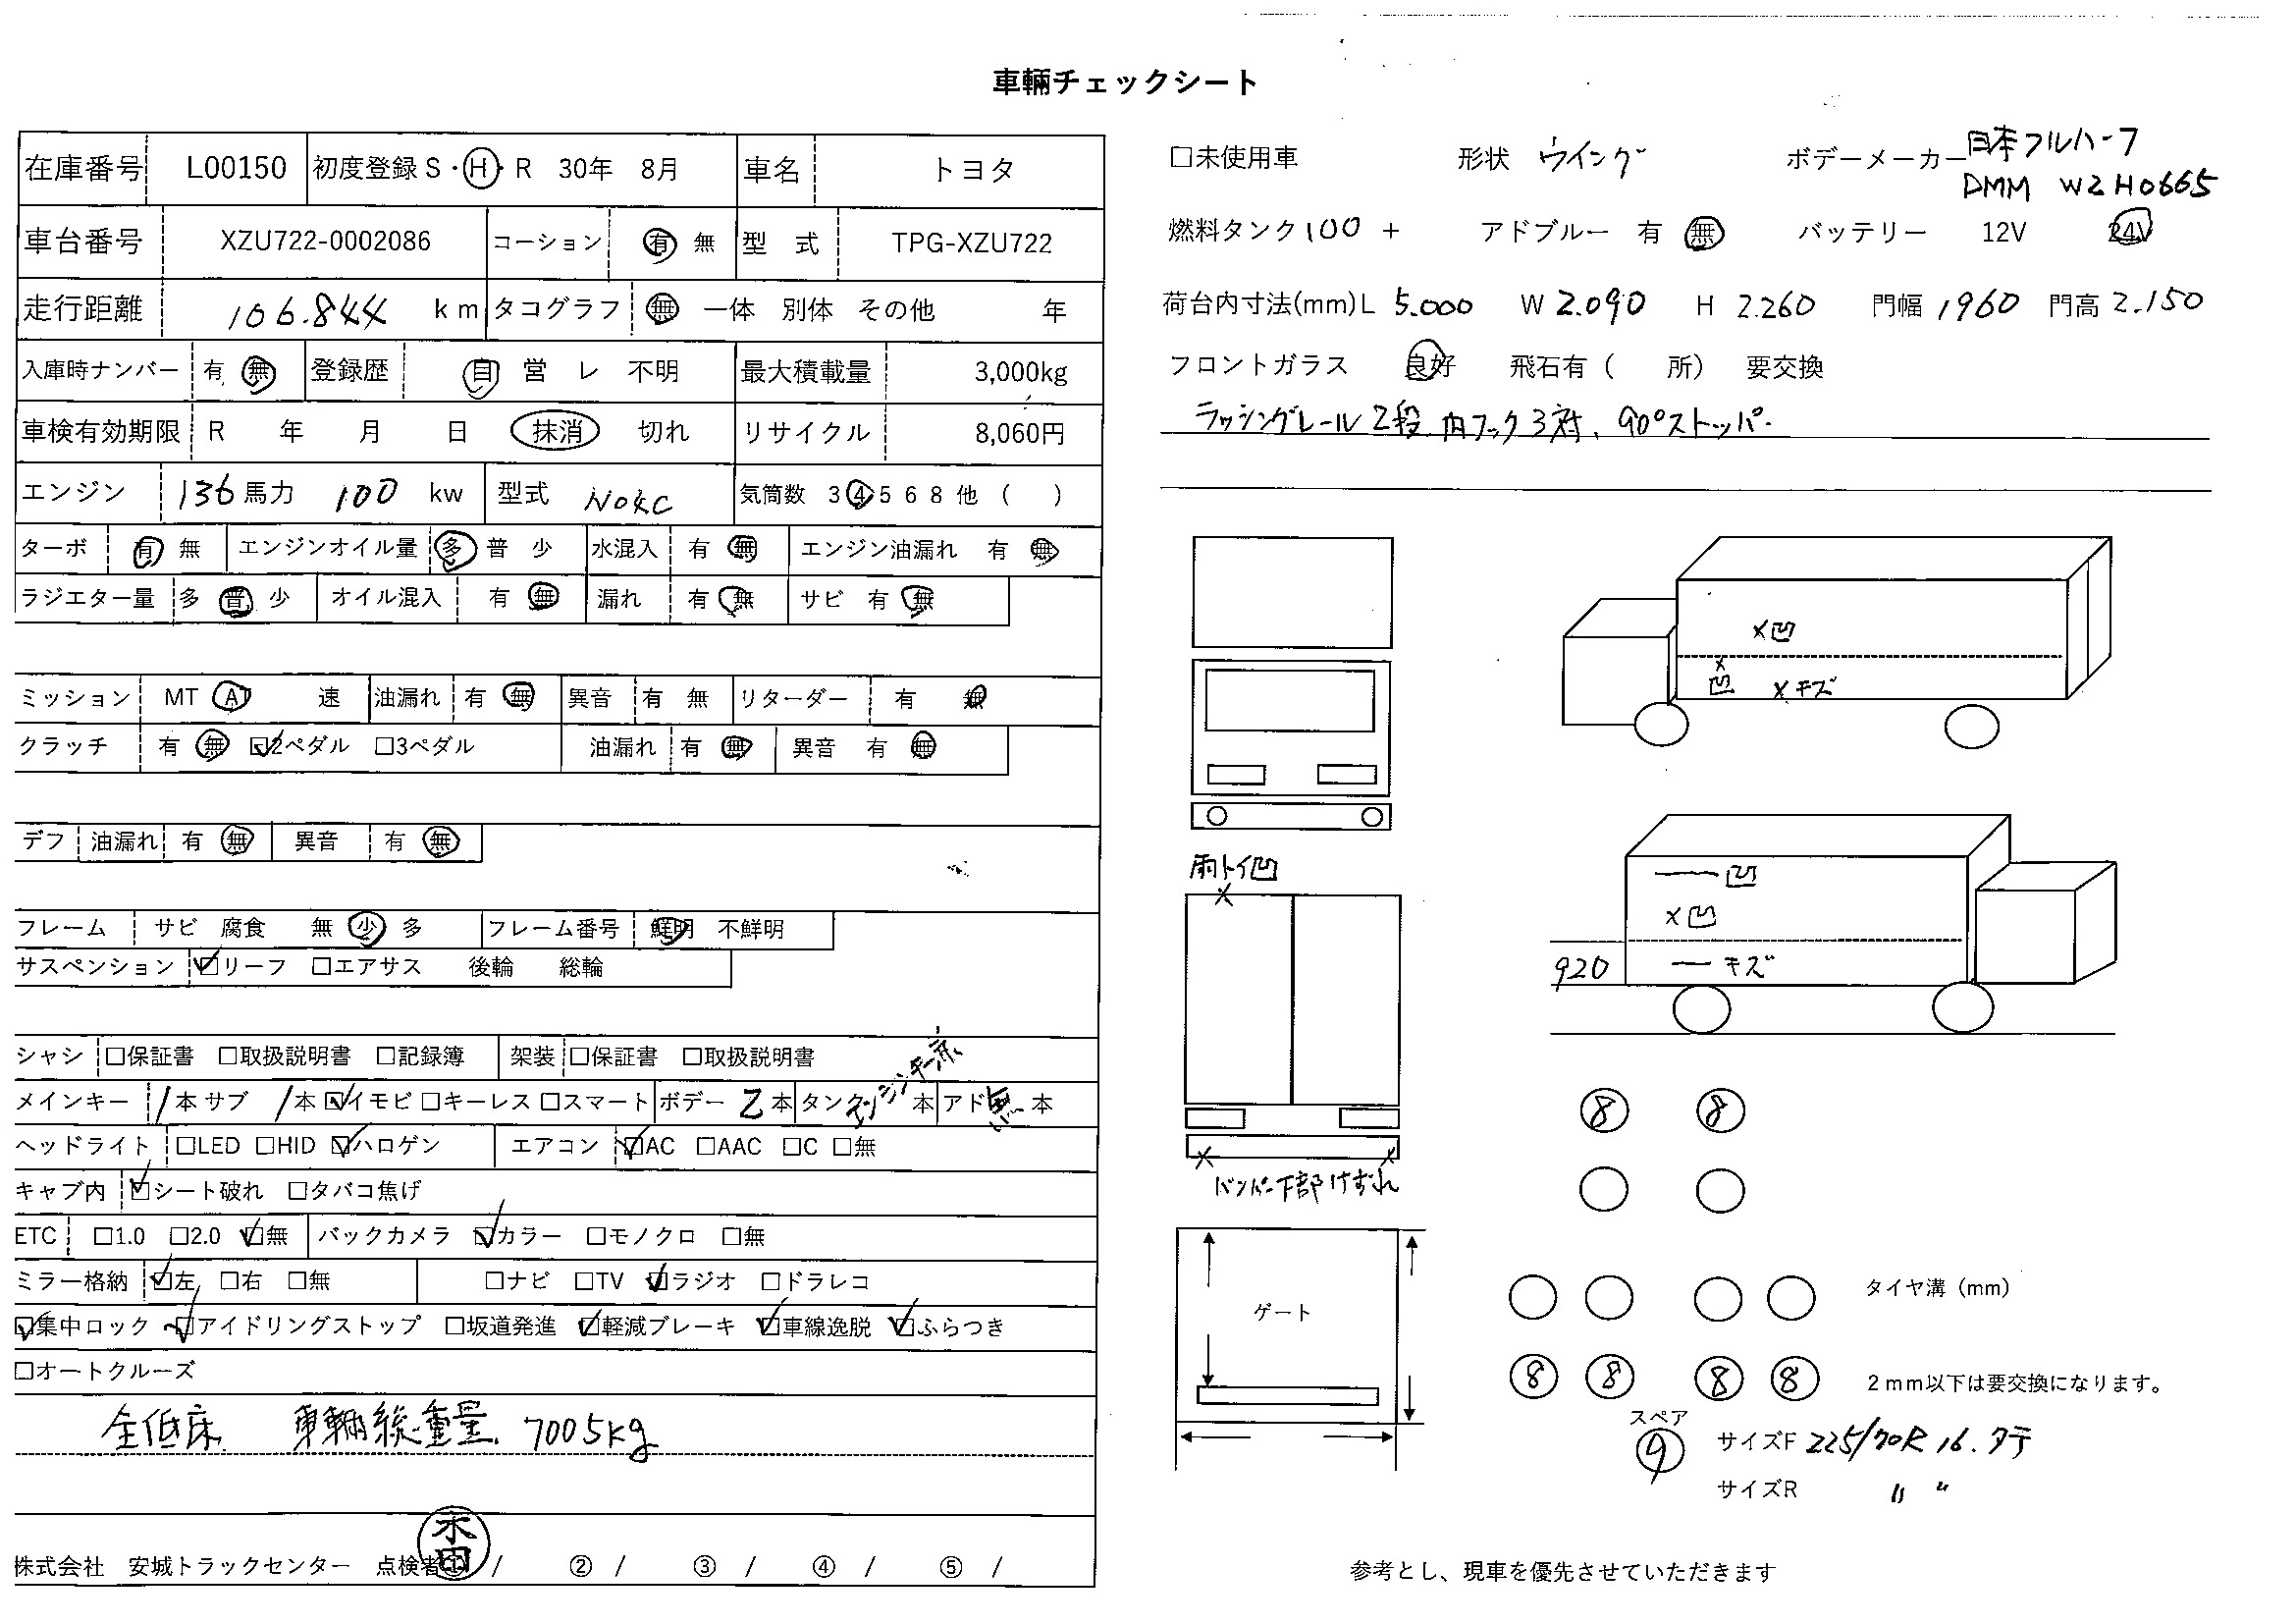 車輛チェックシート
在庫番号 L00150 初度登録 S・H・R 30年 8月 車名 トヨタ
車台番号 XZU722-0002086 コーション 有 無 型 式 TPG-XZU722
走行距離 106.844 km タコグラフ 無 一体 別体 その他 年
入庫時ナンバー 有 無 登録歴 自 営 レ 不明 最大積載量 3,000kg
車検有効期限 R 年 月 日 抹消 切れ リサイクル 8,060円
エンジン 136 馬力 100 kw 型式 N04C 気筒数 3 4 5 6 8 他 ( )
ターボ 有 無 エンジンオイル量 多 普 少 水混入 有 無 エンジン油漏れ 有 無
ラジエター量 多 普 少 オイル混入 有 無 漏れ 有 無 サビ 有 無
ミッション MT AT 速 油漏れ 有 無 異音 有 無 リターダー 有 無
クラッチ 有 無 ☑2ペダル □3ペダル 油漏れ 有 無 異音 有 無
デフ 油漏れ 有 無 異音 有 無
フレーム サビ 腐食 無 少 多 フレーム番号 鮮明 不鮮明
サスペンション ☑リーフ □エアサス 後輪 総輪
シャシ □保証書 □取扱説明書 □記録簿 架装 □保証書 □取扱説明書
メインキー 1本 サブ 1本 ☑イモビ □キーレス □スマート ボデー 2本 タンク エンジンキー共 本 アド 無 本
ヘッドライト □LED □HID ☑ハロゲン エアコン ☑AC □AAC □C □無
キャブ内 ☑シート破れ □タバコ焦げ
ETC □1.0 □2.0 ☑無 バックカメラ ☑カラー □モノクロ □無
ミラー格納 ☑左 □右 □無 □ナビ □TV ☑ラジオ □ドラレコ
☑集中ロック ☑アイドリングストップ □坂道発進 ☑軽減ブレーキ ☑車線逸脱 ☑ふらつき
□オートクルーズ
全低床 車輌総重量. 7005kg
株式会社 安城トラックセンター 点検者① / ② / ③ / ④ / ⑤ /
□未使用車 形状 ウイング ボデーメーカー 日本フルハーフ
DMM W2H0665
燃料タンク 100 + アドブルー 有 無 バッテリー 12V 24V
荷台内寸法(mm) L 5.000 W 2.090 H 2.260 門幅 1960 門高 2.150
フロントガラス 良好 飛石有 ( 所) 要交換
ラッシングレール2段 内フック3対、90°ストッパ.
×凹
×凹 ×キズ
雨トイ凹
×
凹
×凹
920 キズ
× ×
バンパー下部けずれ
ゲート
8 8
タイヤ溝 (mm)
8 8 8 8
2mm以下は要交換になります。
スペア
9
サイズF 225/70R 16. タテ
サイズR 〃 〃
参考とし、現車を優先させていただきます